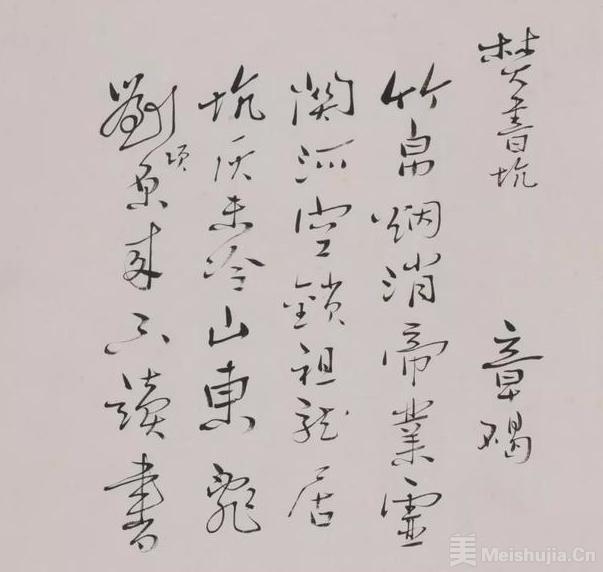 焚書坑 章碣
竹帛烟消帝業虛
関河空鎖祖龍居
坑灰未冷山東亂
劉項原来不讀書
美 Meishujia.Cn